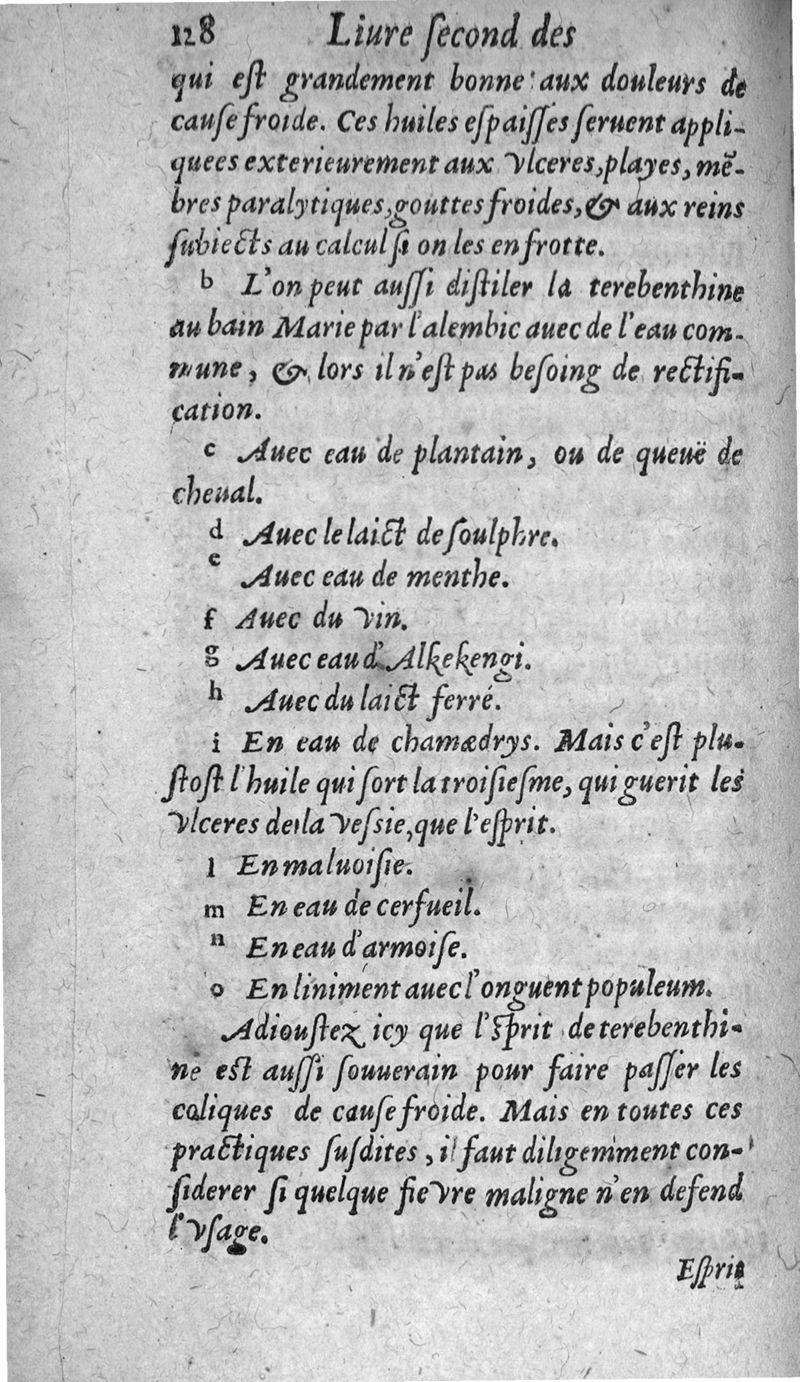 128 Liure ſecond des
qui eſt grandement bonne aux douleurs de
cauſe froide. Ces huiles eſpaiſſes ſeruent appli-
quees exterieurement aux vlceres, playes, mẽ-
bres paralytiques, gouttes froides, & aux reins
ſubiects au calcul ſi on les en frotte.
b L'on peut auſſi diſtiler la terebenthine
au bain Marie par l'alembic auec de l'eau com-
mune, & lors il n'eſt pas beſoing de rectifi-
cation.
c Auec eau de plantain, ou de queuë de
cheual.
d Auec le laict de ſoulphre.
e Auec eau de menthe.
f Auec du vin.
g Auec eau d'Alkekengi.
h Auec du laict ferré.
i En eau de chamædrys. Mais c'eſt plu-
ſtoſt l'huile qui ſort la troiſieſme, qui guerit les
vlceres de la veſsie, que l'eſprit.
l En maluoiſie.
m En eau de cerfueil.
n En eau d'armoiſe.
o En liniment auec l'onguent populeum.
Adiouſtez icy que l'eſprit de terebenthi-
ne eſt auſſi ſouuerain pour faire paſſer les
coliques de cauſe froide. Mais en toutes ces
practiques ſuſdites, il faut diligemment con-
ſiderer ſi quelque fievre maligne n'en defend
l'vſage.
Eſprit